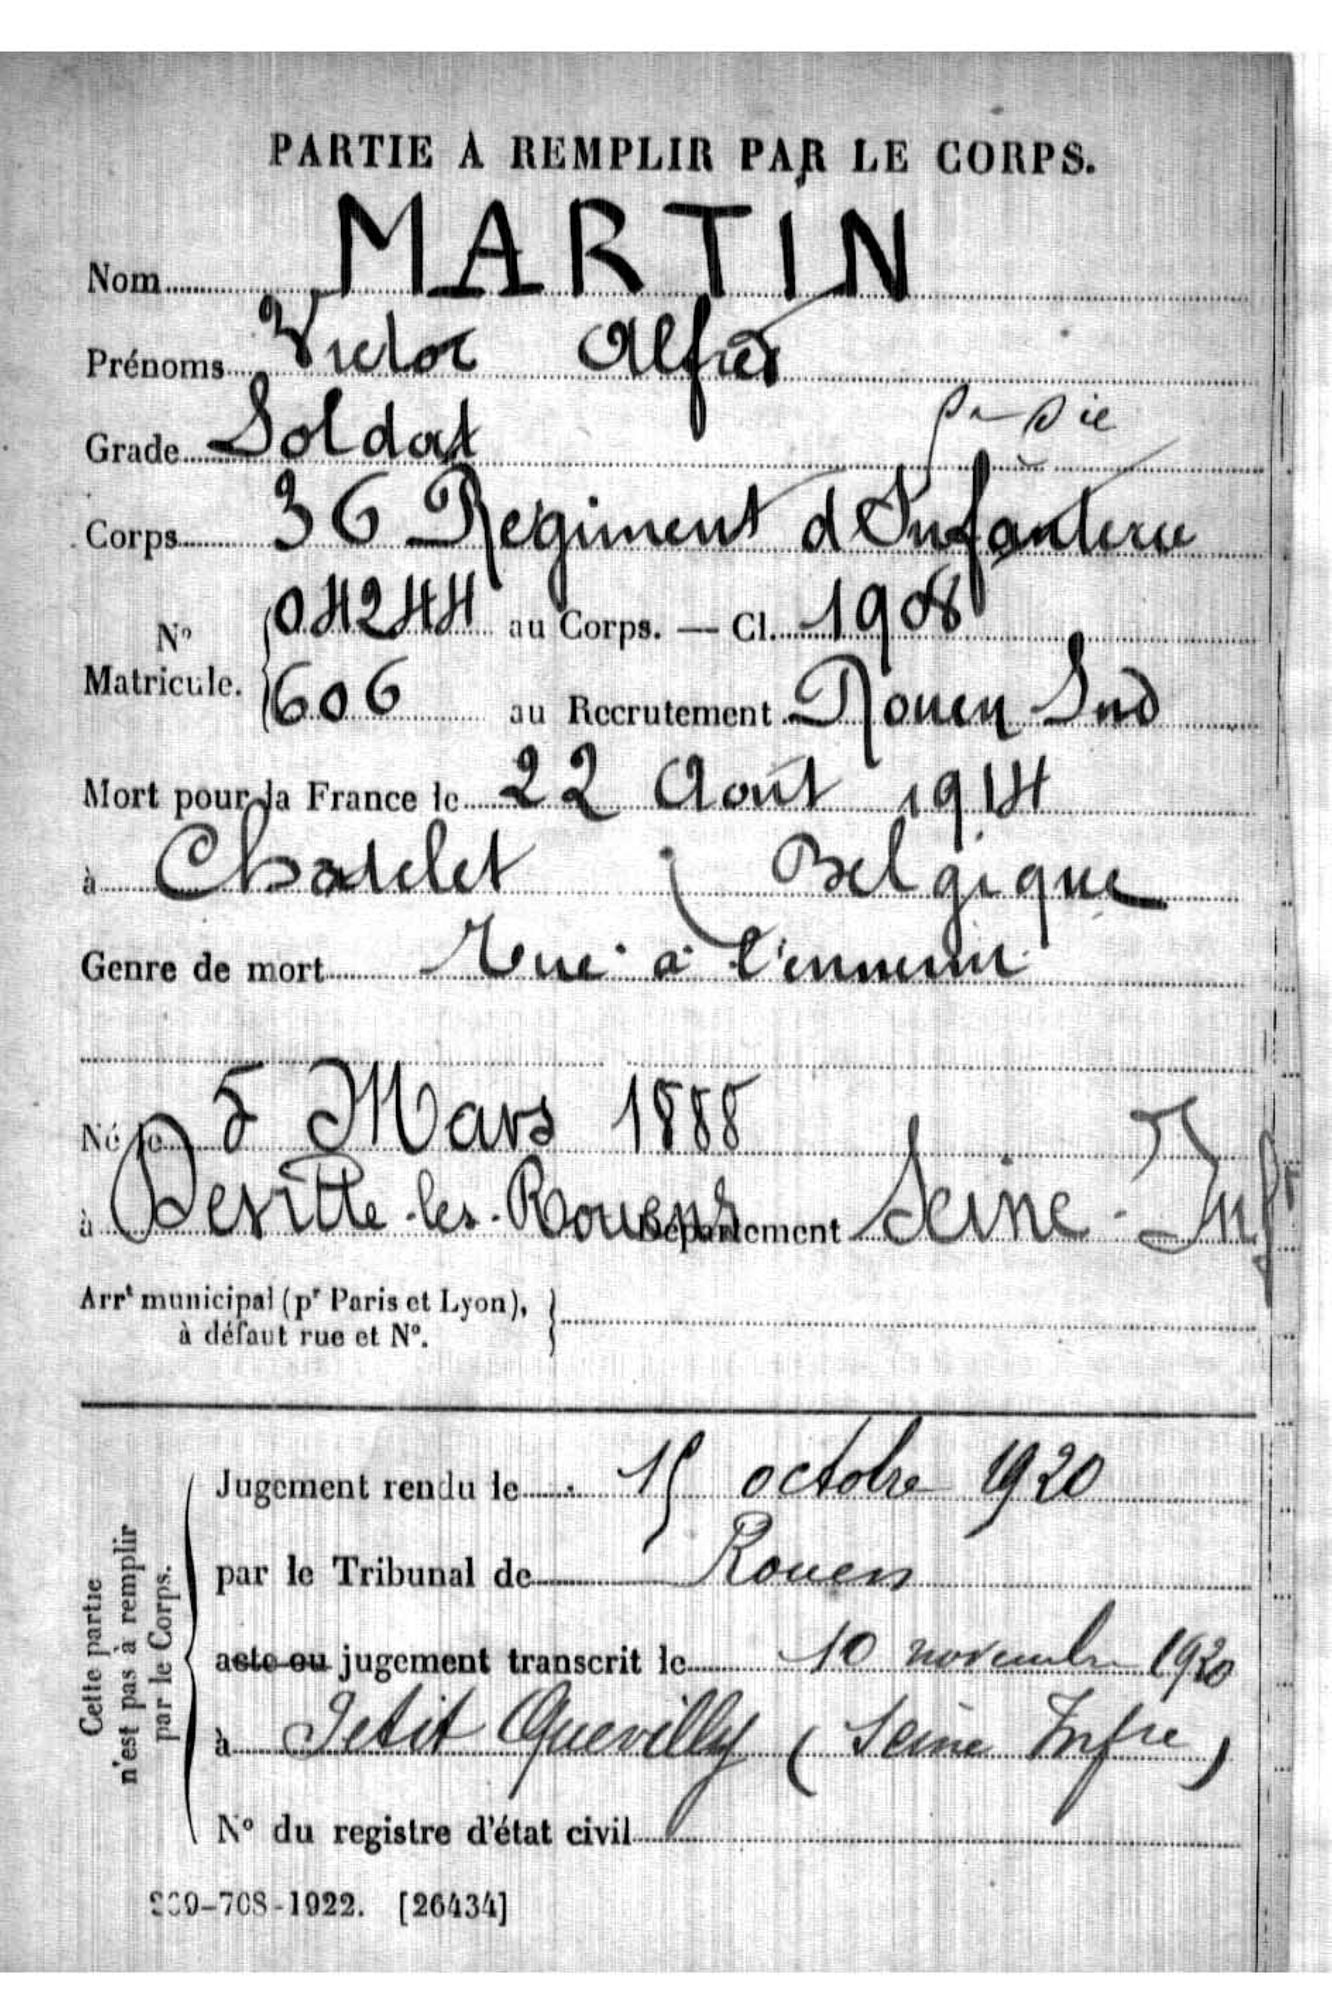 PARTIE À REMPLIR PAR LE CORPS.
Nom MARTIN
Prénoms Victor Alfred
Grade Soldat
Corps 36 Régiment d'Infanterie
N° Matricule. 04244 au Corps. — Cl. 1908
606 au Recrutement Rouen Sud
Mort pour la France le 22 Août 1914
à Chatelet (Belgique
Genre de mort Tué à l'ennemi
Né le 5 Mars 1888
à Deville-les-Rouens Département Seine-Infre
Arrt municipal (pr Paris et Lyon),
à défaut rue et N°.
Cette partie
n'est pas à remplir
par le Corps.
Jugement rendu le 15 octobre 1920
par le Tribunal de Rouen
acte ou jugement transcrit le 10 novembre 1920
à Petit Quevilly (Seine Infre)
N° du registre d'état civil
-708-1922. [26434]